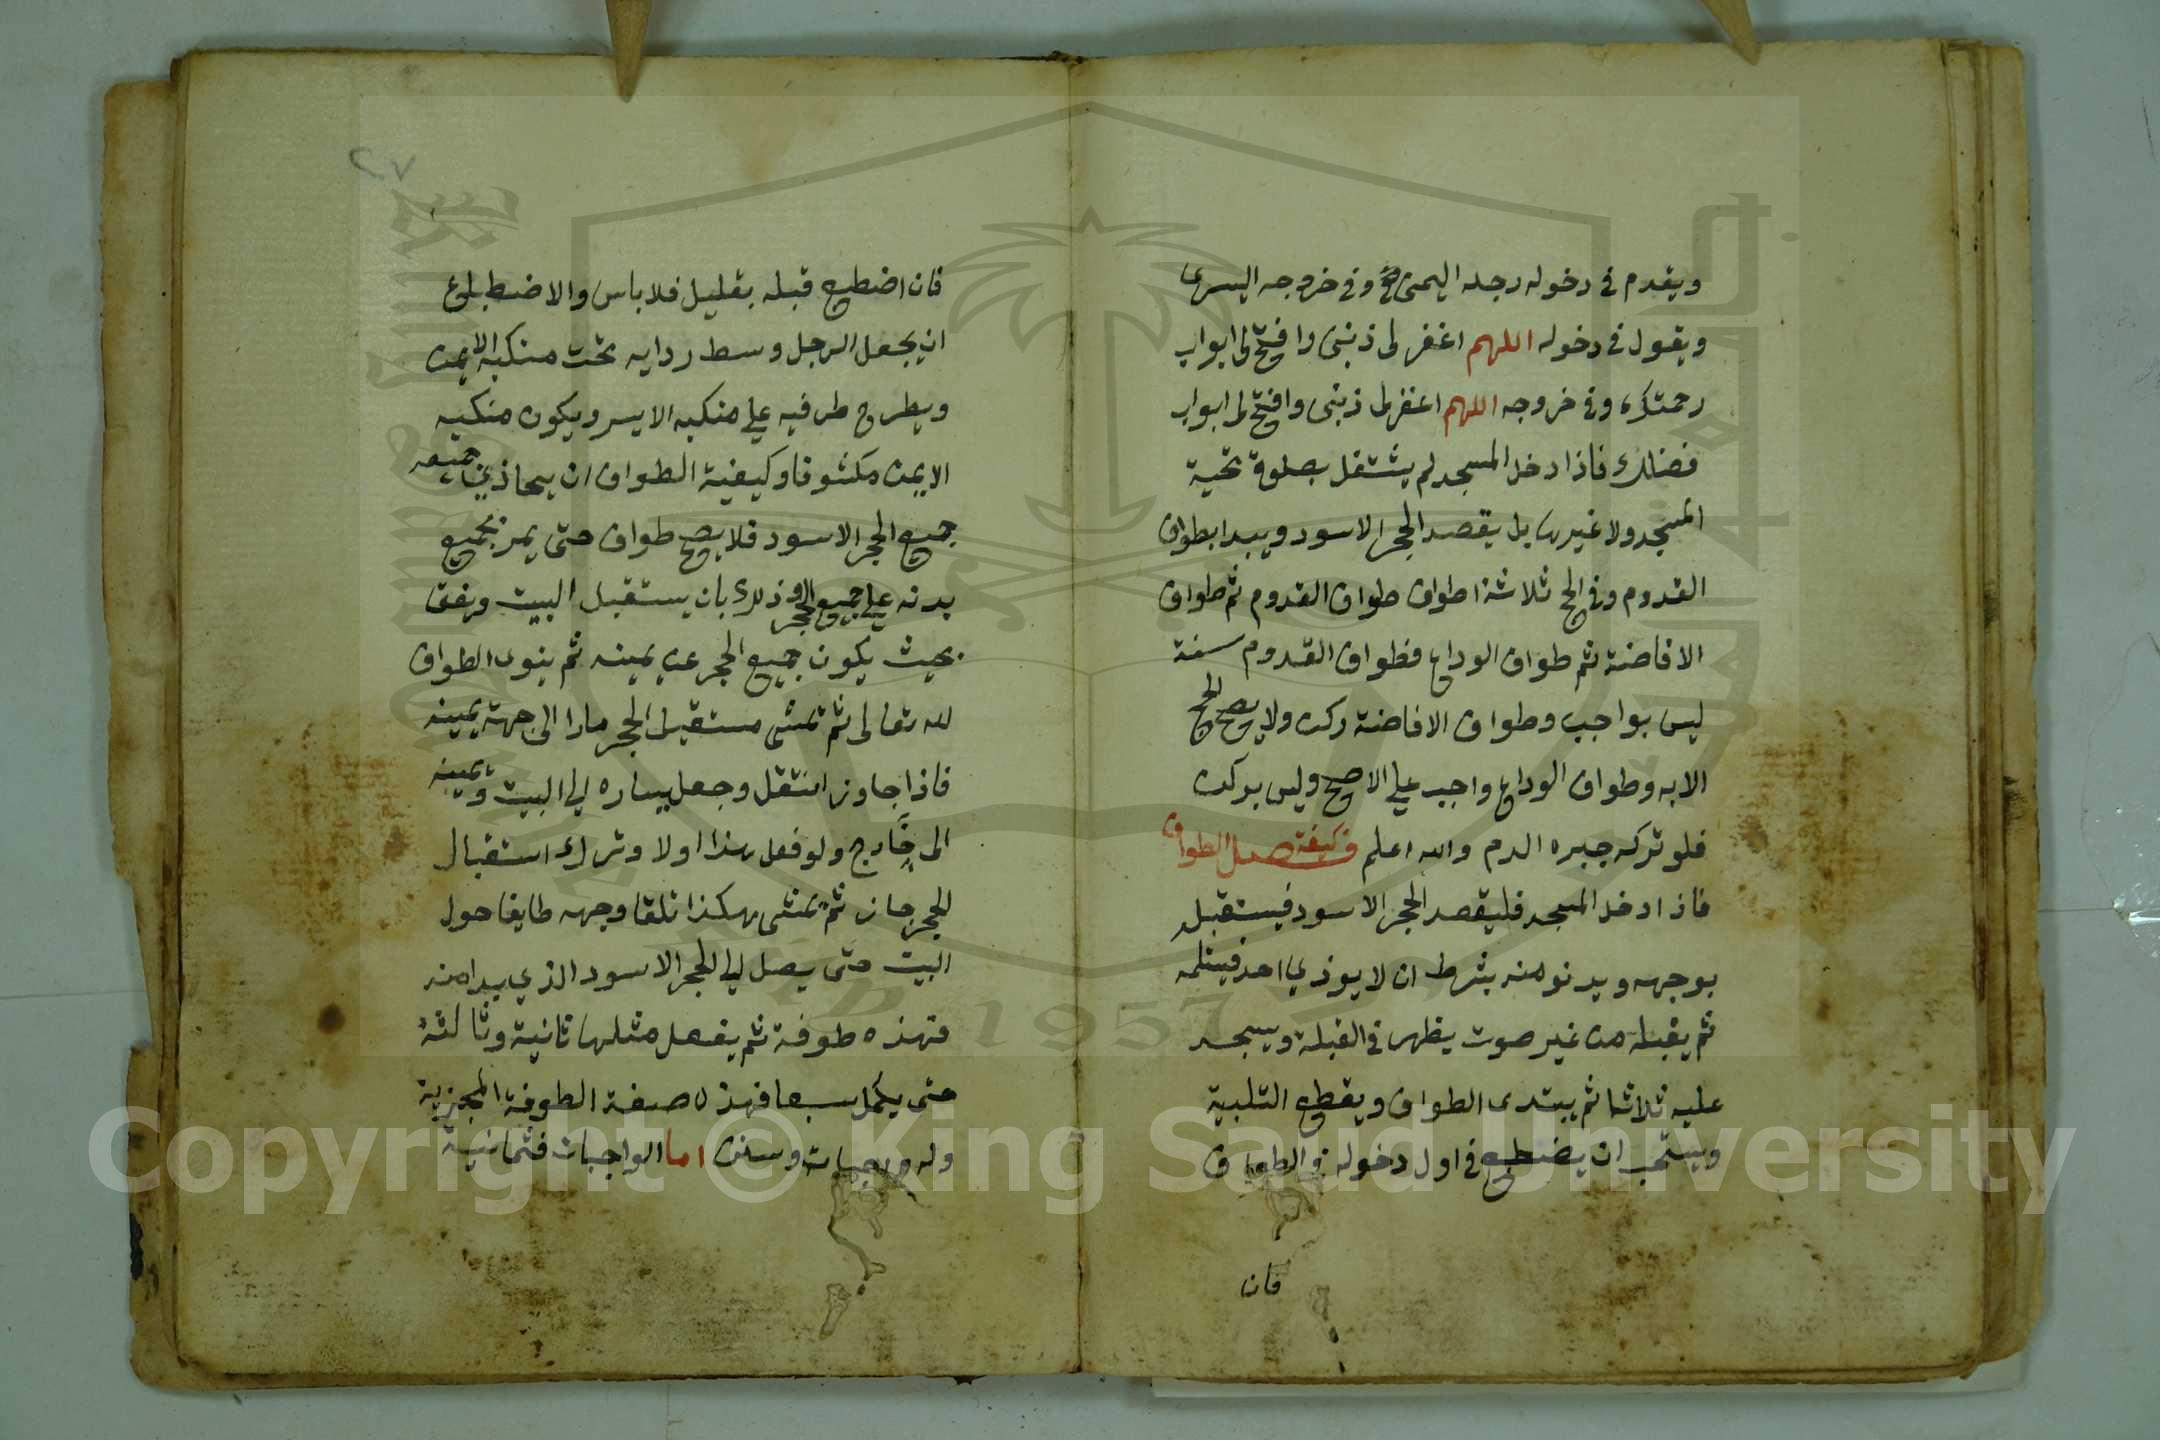 ويقدم في دخوله رجله اليمنى وفي خروجه اليسرى
ويقول في دخوله اللهم اغفر لي ذنبى وافتح لى ابواب
رحمتك وفي خروجه اللهم اغفر لى ذنبى وافتح لى ابواب
فضلك فاذا دخل المسجد لم يشتغل بصلوة تحية
المسجد ولا غيرها بل يقصد الحجر الاسود ويبدا بطواف
القدوم وفي الحج ثلاثة اطواف طواف القدوم ثم طواف
الافاضة ثم طواف الوداع فطواف القدوم سنة
ليس بواجب وطواف الافاضة ركن ولا يصح الحج
الا به وطواف الوداع واجب على الاصح وليس بركن
فلو تركه جبره الدم والله اعلم فصل في كيفية الطواف
فاذا دخل المسجد فليقصد الحجر الاسود فيستقبله
بوجهه ويدنو منه بشرط ان لا يوذي احد فيستلمه
ثم يقبله من غير صوت يظهر في القبلة ويسجد
عليه ثلاثا ثم يبتدى الطواف ويقطع التلبية
ويستحب ان يضطبع في اول دخوله في الطواف
فان
٢٧
فان اضطبع قبله بقليل فلا باس والاضطباع
ان يجعل الرجل وسط ردايه تحت منكبه الايمن
ويطرح طرفيه على منكبه الايسر ويكون منكبه
الايمن مكشوفا وكيفية الطواف ان يحاذي جميعه
جميع الحجر الاسود فلا يصح طواف حتى يمر بجميع
بدنه على جميع الحجر وذلك بان يستقبل البيت ويقف
بحيث يكون جميع الحجر عن يمينه ثم ينوى الطواف
لله تعالى ثم تمشى مستقبل الحجر مارا الى جهة يمينه
فاذا جاوز انتقل وجعل يساره الى البيت ويمينه
الى خارج ولو فعل هذا اولا وترك استقبال
الحجر جاز ثم تمشى هكذا تلقا وجهه طايفا حول
البيت حتى يصل الى الحجر الاسود الذي بدا منه
فهذه طوفة ثم يفعل مثلها ثانية وثالثة
حتى يكمل سبعا فهذه صفة الطوفة المجزية
وله واجبات وسنن اما الواجبات فثمانية
Copyright © King Saud University
1957